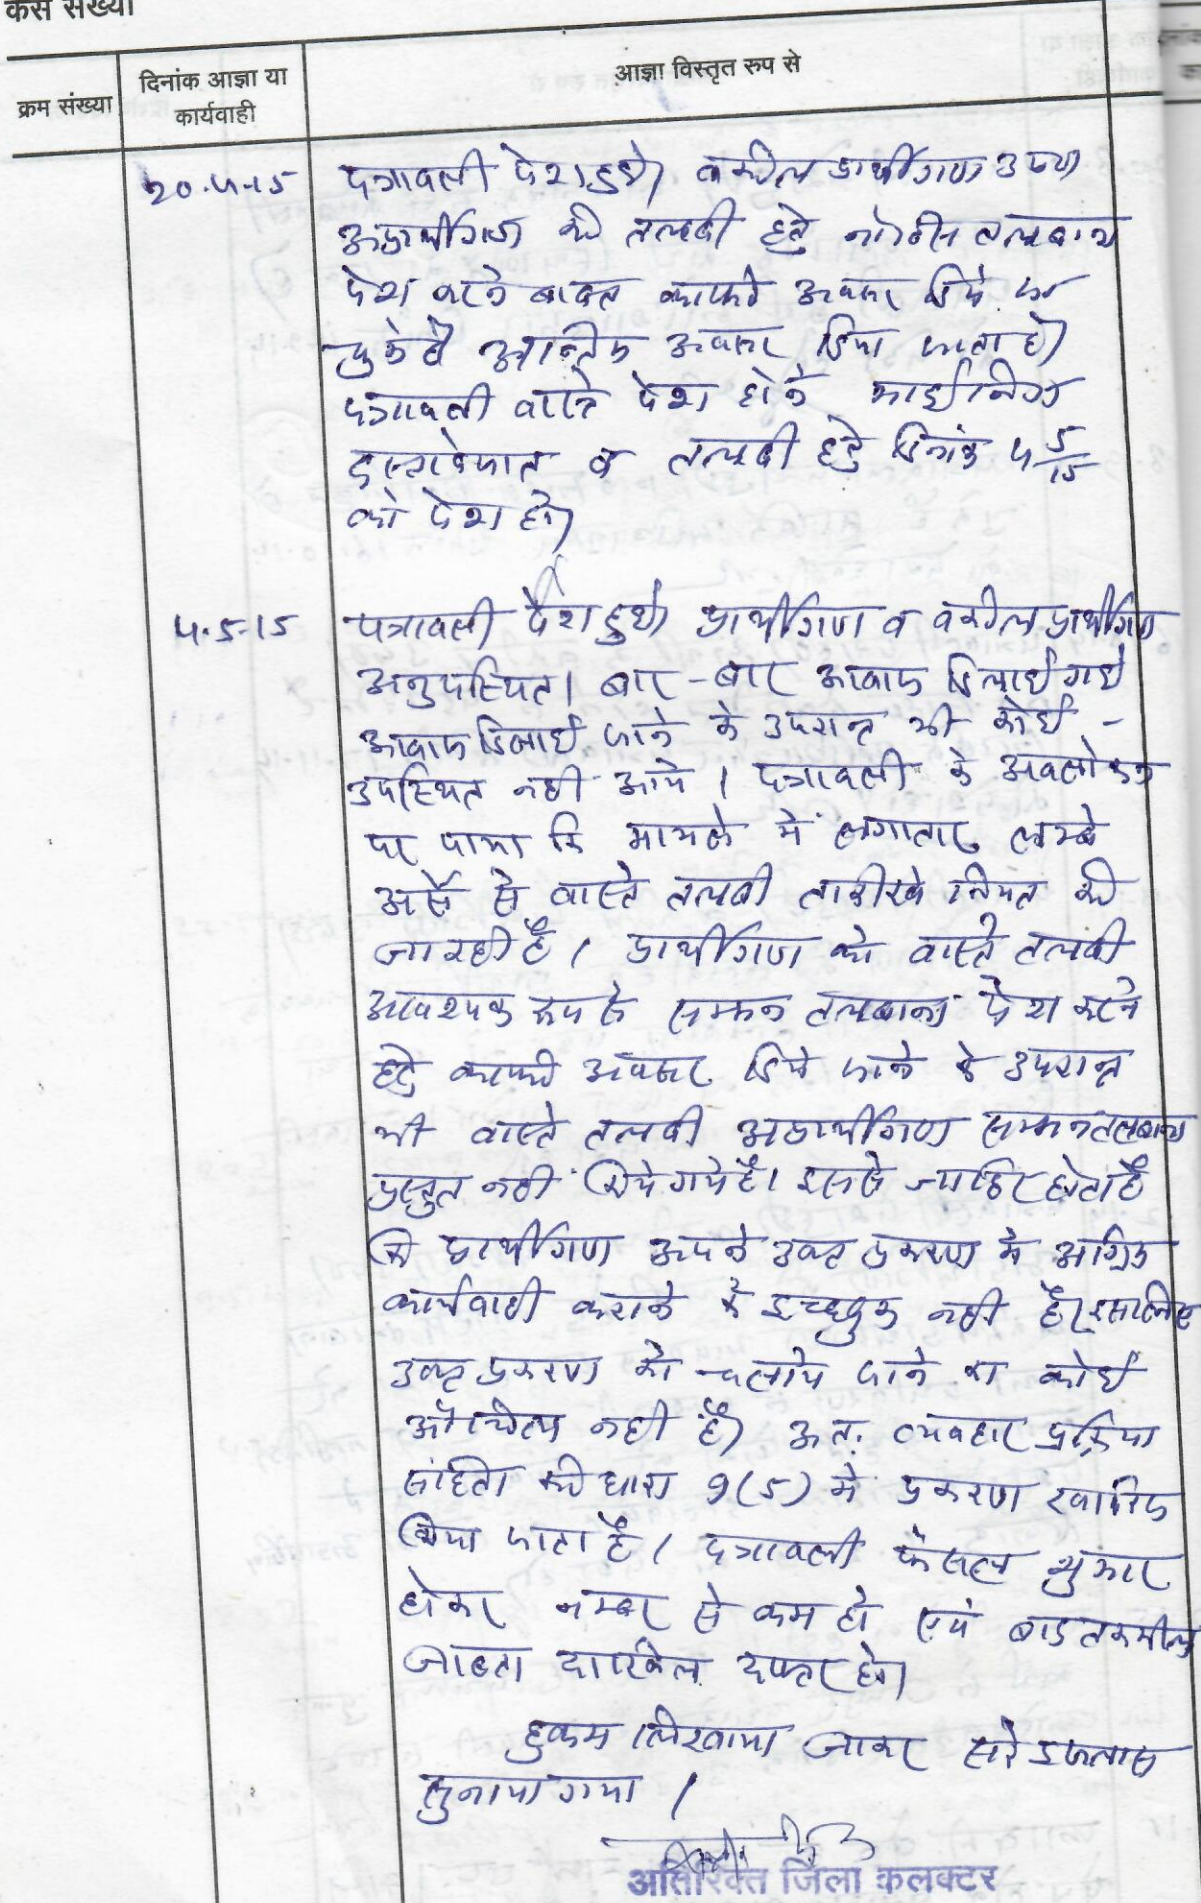 केस संख्या
क्रम संख्या
दिनांक आज्ञा या
कार्यवाही
आज्ञा विस्तृत रुप से
20.4.15
पत्रावली पेश हुयी। वकील प्रार्थीगण उप०
अप्रार्थीगण की तलबी हेतु नोटिस तलबाना
पेश करने बाबत काफी अवसर दिये जा
चुके है अन्तिम अवसर दिया जाता है।
पत्रावली वास्ते पेश होने
दस्तावेजात व तलबी हेतु दिनांक 4 5/15
को पेश हो।
4.5.15
पत्रावली पेश हुयी। प्रार्थीगण व वकील प्रार्थीगण
अनुपस्थित। बार-बार आवाज दिलाई गई
आवाज दिलाई जाने के उपरान्त भी कोई -
उपस्थित नही आये। पत्रावली के अवलोकन
पर पाया कि मामले में लगातार लम्बे
अर्से से वास्ते तलबी तारीखे नियत की
जा रही है। प्रार्थीगण को वास्ते तलबी
आवश्यक रूप से सम्मन तलबाना पेश करने
हेतु काफी अवसर दिये जाने के उपरान्त
भी वास्ते तलबी अप्रार्थीगण सम्मन तलबाना
प्रस्तुत नही किये गये है। इससे जाहिर होता है
कि प्रार्थीगण अपने उक्त प्रकरण मे अग्रिम
कार्यवाही कराने के इच्छुक नही है। इसलिए
उक्त प्रकरण को चलाये जाने का कोई
औचित्य नही है। अतः व्यवहार प्रक्रिया
संहिता की धारा 9(5) मे प्रकरण खारिज
किया जाता है। पत्रावली फैसल शुमार
होकर नम्बर से कम हो एवं बाद तकमील
जाब्ता दाखिल दफ्तर हो।
हुकम लिखाया जाकर सरे इजलास
सुनाया गया।
अतिरिक्त जिला कलक्टर